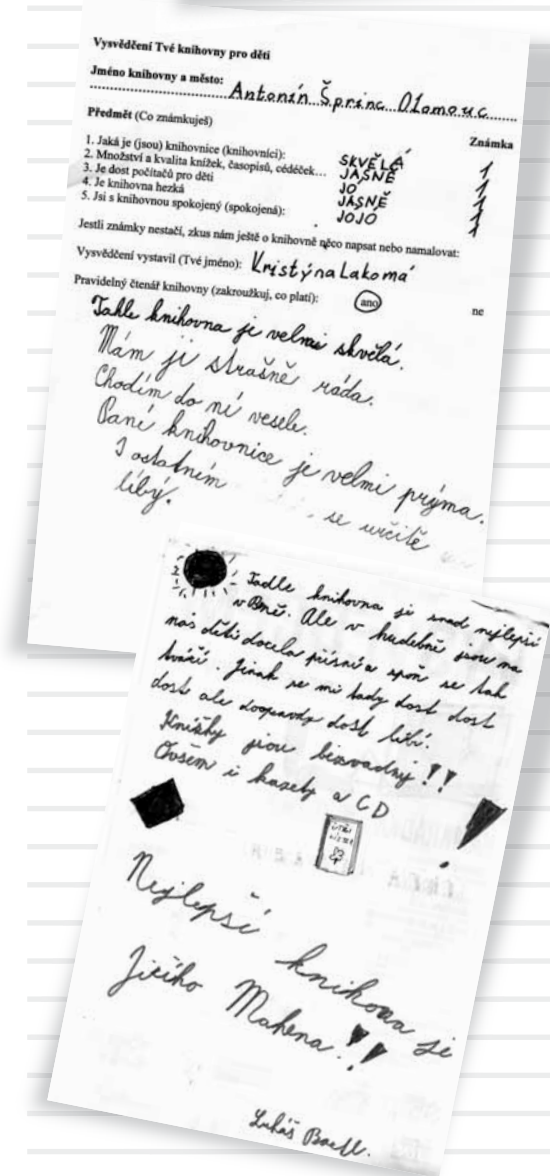 Vysvědčení Tvé knihovny pro děti
Jméno knihovny a město: Antonín Šprinc Olomouc
Předmět (Co známkuješ) Známka
1. Jaká je (jsou) knihovnice (knihovníci): SKVĚLÁ 1
2. Množství a kvalita knížek, časopisů, cédéček... JASNĚ 1
3. Je dost počítačů pro děti JO 1
4. Je knihovna hezká JASNĚ 1
5. Jsi s knihovnou spokojený (spokojená): JOJO 1
Jestli známky nestačí, zkus nám ještě o knihovně něco napsat nebo namalovat:
Vysvědčení vystavil (Tvé jméno): Kristýna Lakomá
Pravidelný čtenář knihovny (zakroužkuj, co platí): ano ne
Tahle knihovna je velmi skvělá.
Mám ji strašně ráda.
Chodím do ní vesele.
Paní knihovnice je velmi prýma.
I ostatním se určitě
líbý.
Tadle knihovna je snad nejlepší
v Brně. Ale v hudebně jsou na
nás děti docela přísní a spoň se tak
tváří. Jinak se mi tady dost dost
dost ale doopravdy dost líbí.
Knížky jsou bezvadný !!
Ovšem i kazety a CD !
Nejlepší knihovna je
Jiřího Mahena!!
Lukáš